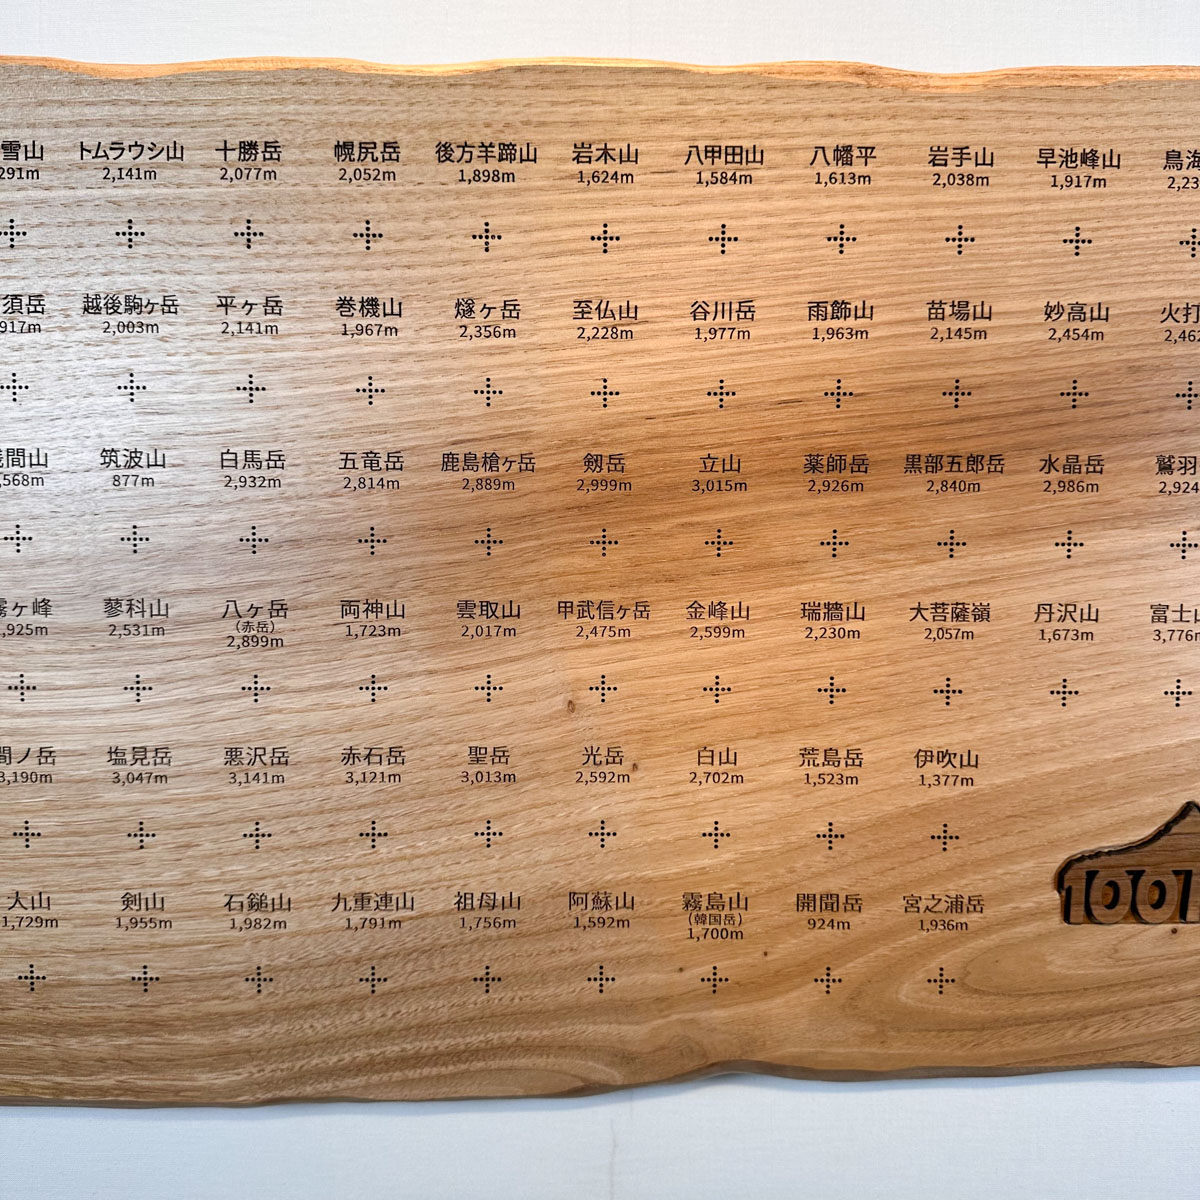 雪山 トムラウシ山 十勝岳 幌尻岳 後方羊蹄山 岩木山 八甲田山 八幡平 岩手山 早池峰山 鳥海
291m 2,141m 2,077m 2,052m 1,898m 1,624m 1,584m 1,613m 2,038m 1,917m 2,23
須岳 越後駒ヶ岳 平ヶ岳 巻機山 燧ヶ岳 至仏山 谷川岳 雨飾山 苗場山 妙高山 火打
917m 2,003m 2,141m 1,967m 2,356m 2,228m 1,977m 1,963m 2,145m 2,454m 2,462
間山 筑波山 白馬岳 五竜岳 鹿島槍ヶ岳 剱岳 立山 薬師岳 黒部五郎岳 水晶岳 鷲羽
,568m 877m 2,932m 2,814m 2,889m 2,999m 3,015m 2,926m 2,840m 2,986m 2,924
霧ヶ峰 蓼科山 八ヶ岳 両神山 雲取山 甲武信ヶ岳 金峰山 瑞牆山 大菩薩嶺 丹沢山 富士山
(赤岳)
,925m 2,531m 2,899m 1,723m 2,017m 2,475m 2,599m 2,230m 2,057m 1,673m 3,776m
間ノ岳 塩見岳 悪沢岳 赤石岳 聖岳 光岳 白山 荒島岳 伊吹山
3,190m 3,047m 3,141m 3,121m 3,013m 2,592m 2,702m 1,523m 1,377m
大山 剣山 石鎚山 九重連山 祖母山 阿蘇山 霧島山 開聞岳 宮之浦岳
(韓国岳)
1,729m 1,955m 1,982m 1,791m 1,756m 1,592m 1,700m 924m 1,936m
100